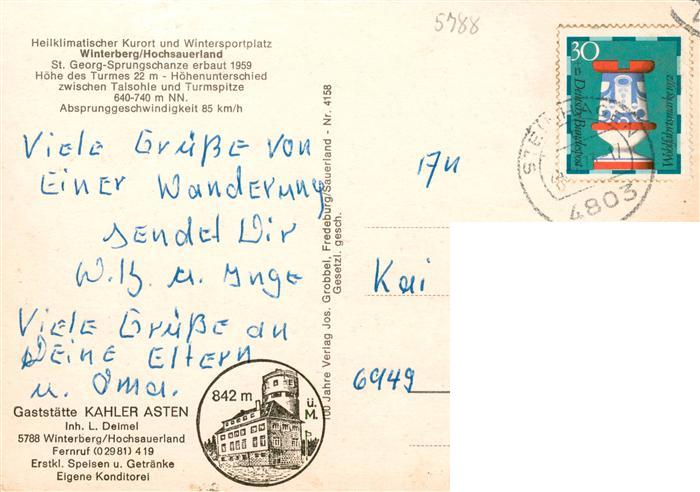 5788
Heilklimatischer Kurort und Wintersportplatz
Winterberg/Hochsauerland
St. Georg-Sprungschanze erbaut 1959
Höhe des Turmes 22 m - Höhenunterschied
zwischen Talsohle und Turmspitze
640-740 m NN.
Absprunggeschwindigkeit 85 km/h
Viele Grüße von
Einer Wanderung
sendet Dir
u. Inge
Viele Grüße an
Deine Eltern
u. Oma.
Gaststätte KAHLER ASTEN
Inh. L. Deimel
5788 Winterberg/Hochsauerland
Fernruf (02981) 419
Erstkl. Speisen u. Getränke
Eigene Konditorei
842 m ü. M.
100 Jahre Verlag Jos. Grobbel, Fredeburg/Sauerland - Nr. 4158
Gesetzl. gesch.
30
Deutsche Bundespost
Wohlfahrtsmarke
4803
Kai
6949